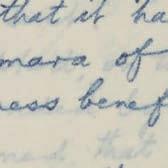 that it ha
mara of
ness benef